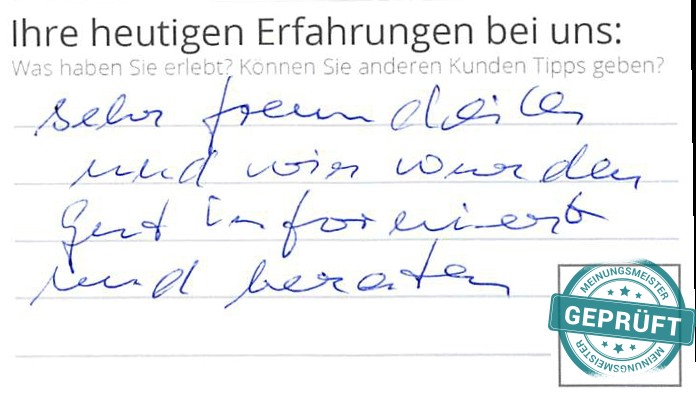 Ihre heutigen Erfahrungen bei uns:
Was haben Sie erlebt? Können Sie anderen Kunden Tipps geben?
sehr freundlich
und wir wurden
gut informiert
und beraten
MEINUNGSMEISTER
GEPRÜFT
MEINUNGSMEISTER